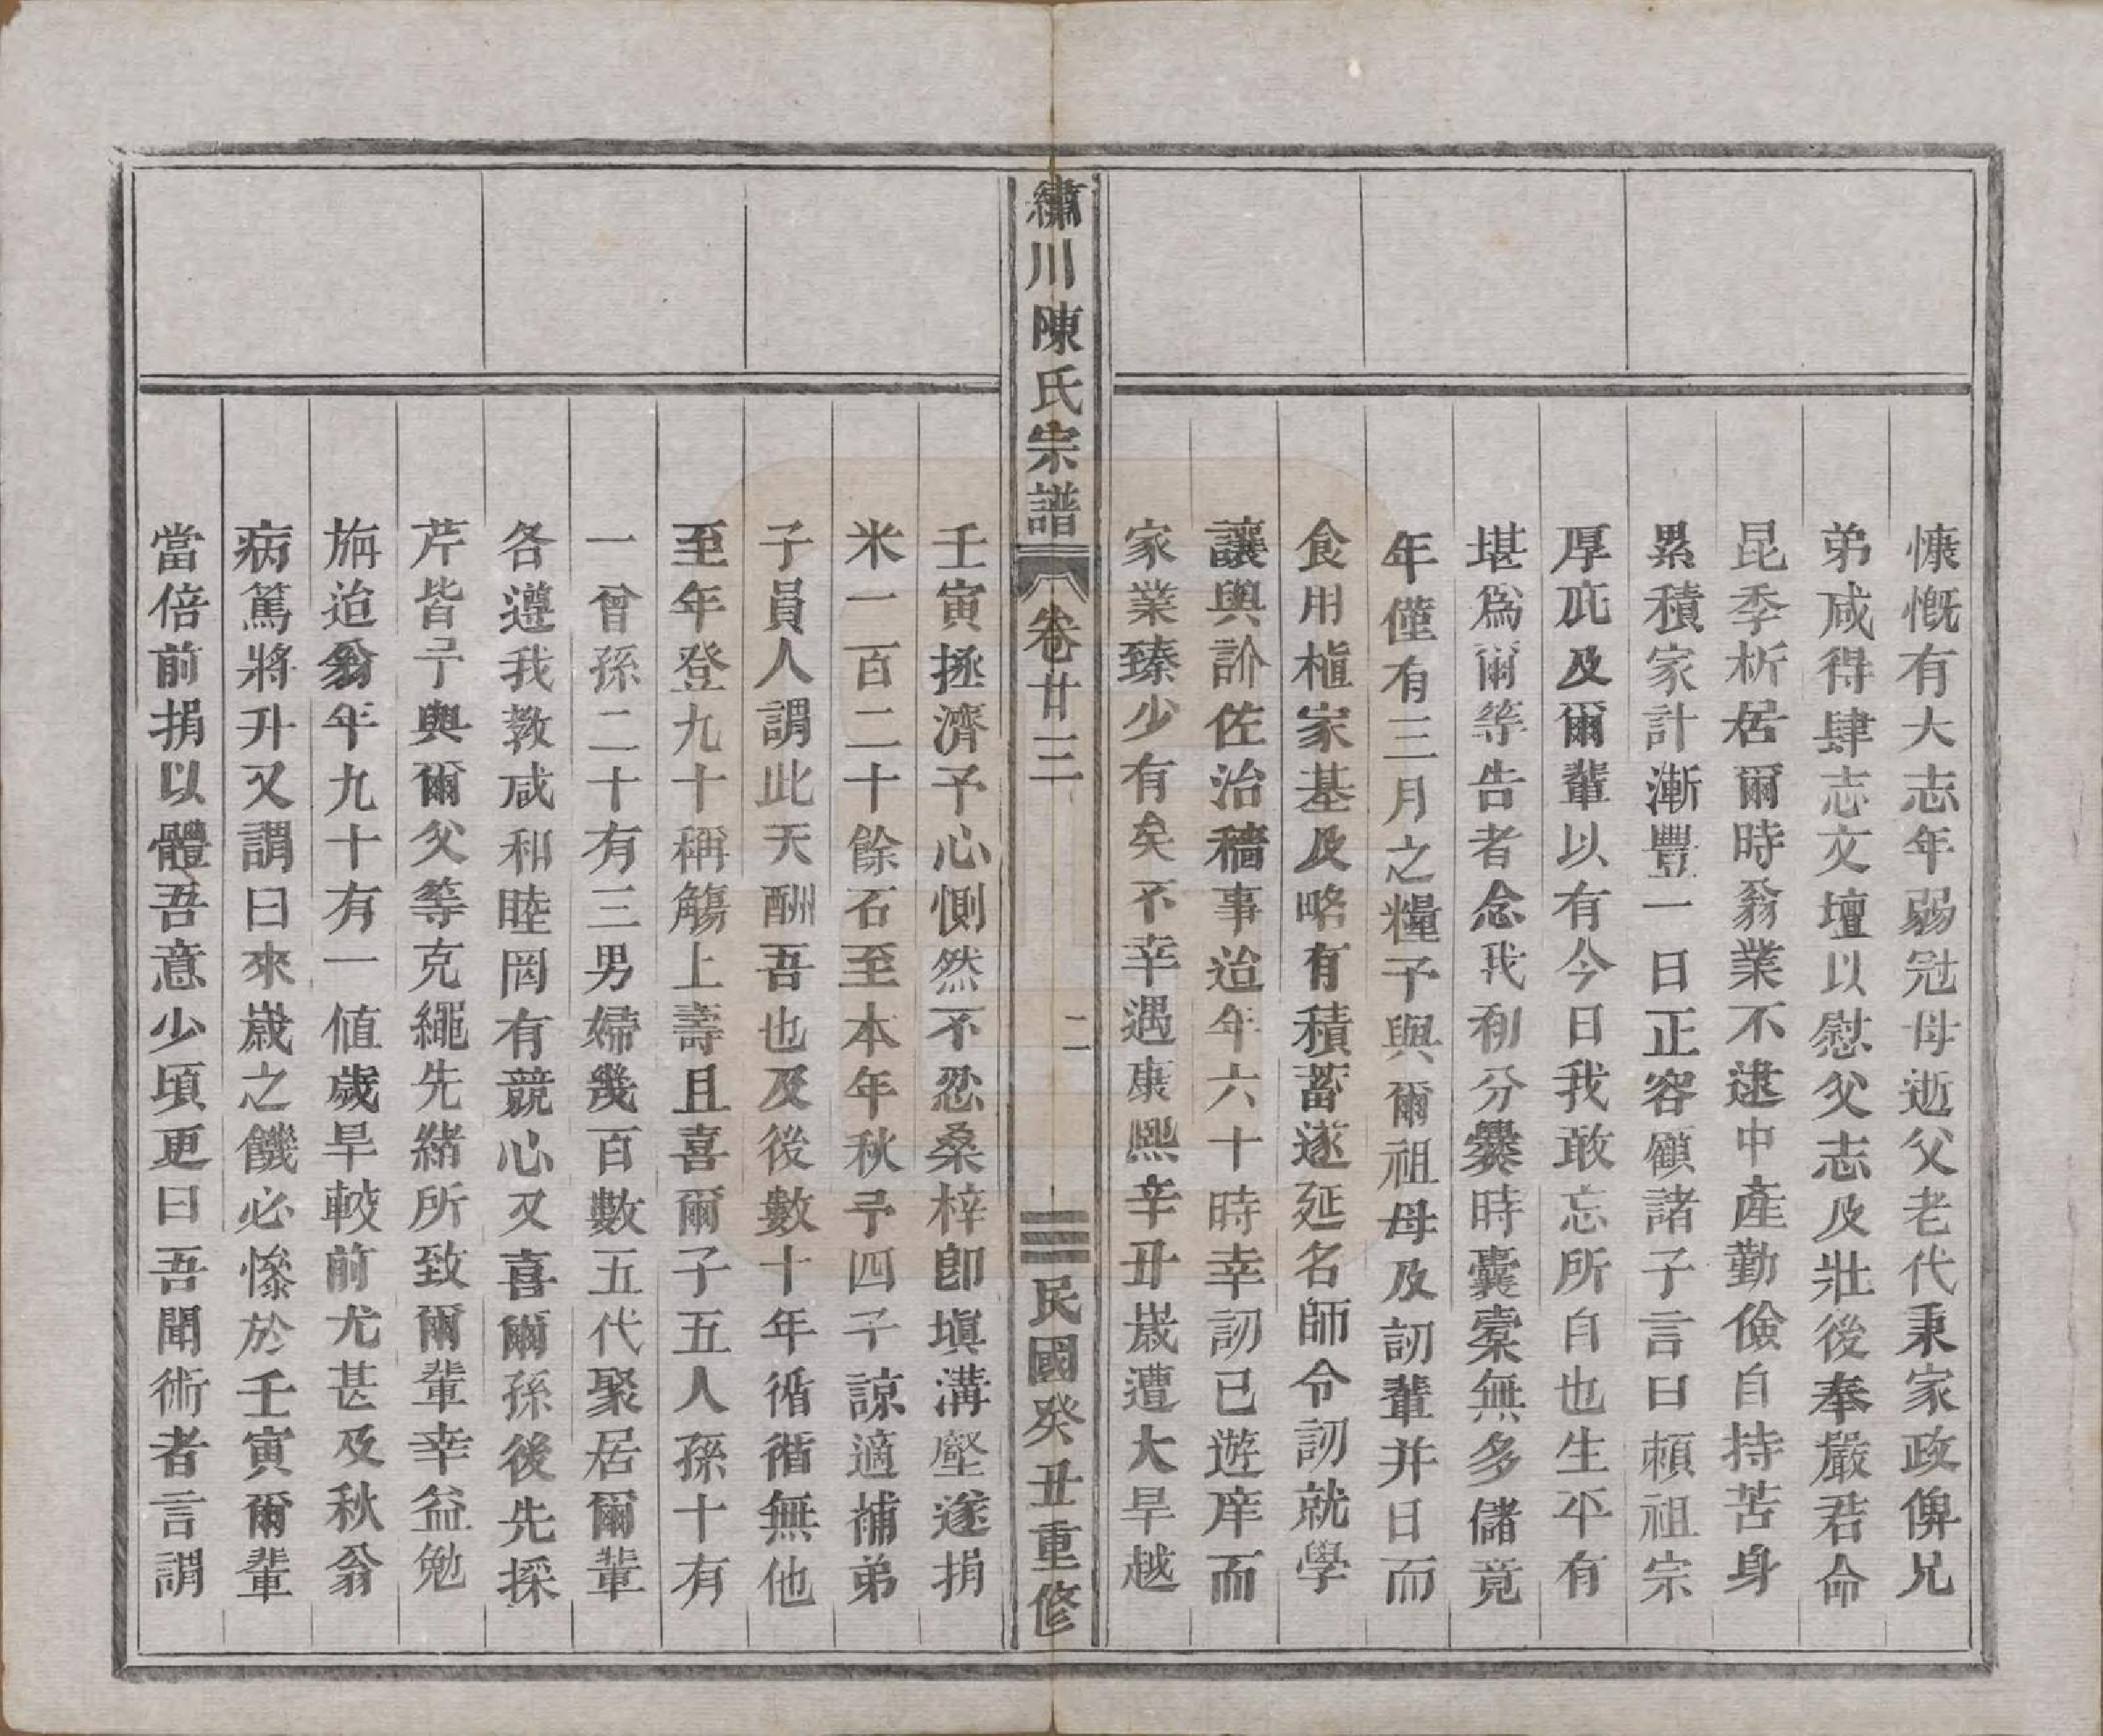 慷慨有大志年弱冠母逝父老代秉家政俾兄
弟咸得肆志文壇以慰父志及壯後奉嚴君命
昆季析居爾時翁業不逮中產勤儉自持苦身
累積家計漸豐一日正容顧諸子言曰賴祖宗
厚庇及爾輩以有今日我敢忘所自也生平有
堪爲爾等告者念我初分爨時囊橐無多儲竟
年僅有三月之糧予與爾祖母及訒輩并日而
食用植家基及略有積蓄遂延名師令訒就學
讓與訡佐治穡事迨年六十時幸訒已遊庠而
家業臻少有矣不幸遇康熙辛丑歲遭大旱越
繡川陳氏宗譜 卷廿三 二 民國癸丑重修
壬寅拯濟予心惻然不忍桑梓卽塡溝壑遂捐
米一百二十餘石至本年秋予四子諒適補弟
子員人謂此天酬吾也及後數十年循循無他
至年登九十稱觴上壽且喜爾子五人孫十有
一曾孫二十有三男婦幾百數五代聚居爾輩
各遵我教咸和睦罔有競心又喜爾孫後先採
芹皆予與爾父等克繩先緒所致爾輩幸益勉
旃迨翁年九十有一值歲旱較前尤甚及秋翁
病篤將升又謂曰來歲之饑必慘於壬寅爾輩
當倍前捐以體吾意少頃更曰吾聞術者言謂